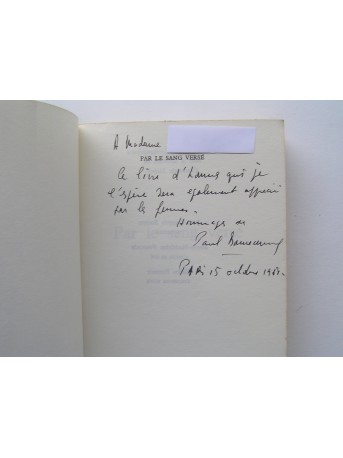 A Madame
PAR LE SANG VERSÉ
Ce livre d'hommes qui je
l'espère sera également apprécié
par les femmes.
Hommage de
Paul Bonnecarrère
PARIS 15 octobre 1968.